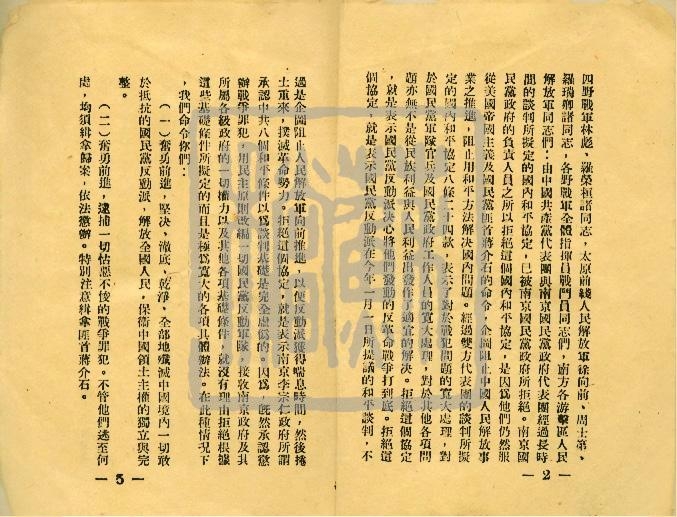 四野戰軍林彪、羅榮桓諸同志，太原前綫人民解放軍徐向前、周士第、
羅瑞卿諸同志，各野戰軍全體指揮員戰鬥員同志們，南方各游擊區人民
解放軍同志們：由中國共產黨代表團與南京國民黨政府代表團經過長時
間的談判所擬定的國內和平協定，已被南京國民黨政府所拒絕。南京國
民黨政府的負責人員之所以拒絕這個國內和平協定，是因爲他們仍然服
從美國帝國主義及國民黨匪首蔣介石的命令，企圖阻止中國人民解放事
業之推進，阻止用和平方法解決國內問題。經過雙方代表團的談判所擬
定的國內和平協定八條二十四款，表示了對於戰犯問題的寬大處理，對
於國民黨軍隊官兵及國民黨政府工作人員的寬大處理，對於其他各項問
題亦無不是從民族利益與人民利益出發作了適宜的解決。拒絕這個協定
，就是表示國民黨反動派決心將他們發動的反革命戰爭打到底。拒絕這
個協定，就是表示國民黨反動派在今年一月一日所提議的和平談判，不
— 2 —
過是企圖阻止人民解放軍向前推進，以便反動派獲得喘息時間，然後捲
土重來，撲滅革命勢力。拒絕這個協定，就是表示南京李宗仁政府所謂
承認中共八個和平條件以爲談判基礎是完全虛僞的。因爲，旣然承認懲
辦戰爭罪犯，用民主原則改編一切國民黨反動軍隊，接收南京政府及其
所屬各級政府的一切權力以及其他各項基礎條件，就沒有理由拒絕根據
這些基礎條件所擬定的而且是極爲寬大的各項具體辦法。在此種情況下
，我們命令你們：
（一）奮勇前進，堅决、澈底、乾淨、全部地殲滅中國境內一切敢
於抵抗的國民黨反動派，解放全國人民，保衛中國領土主權的獨立與完
整。
（二）奮勇前進，逮捕一切怙惡不悛的戰爭罪犯。不管他們逃至何
處，均須緝拿歸案，依法懲辦。特別注意緝拿匪首蔣介石。
— 3 —